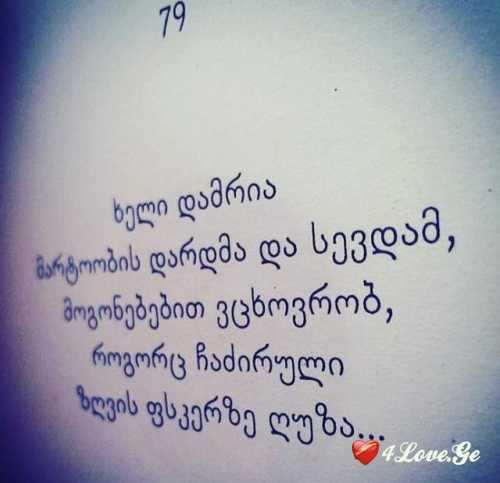 79
ხელი დამრია
მარტოობის დარდმა და სევდამ,
მოგონებებით ვცხოვრობ,
როგორც ჩაძირული
ზღვის ფსკერზე ღუზა...
4Love.Ge